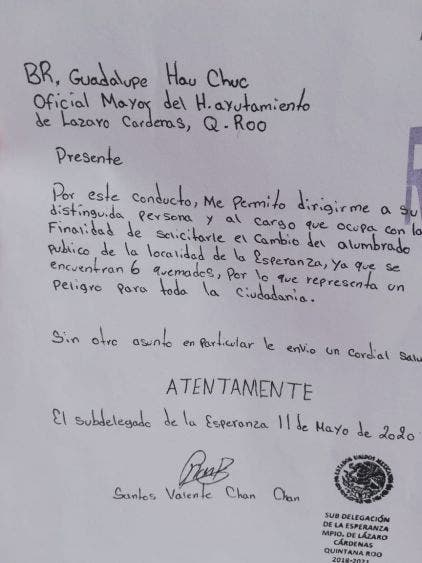 BR, Guadalupe Hau Chuc
Oficial Mayor del H. ayutamiento
de Lazaro Carderas, Q. Roo
Presente
Por este conducto, Me Permito dirigirme a su
distinguida persona y al cargo que ocupa con la
Finalidad de solicitarle el Cambio del alumbrado
publico de la localidad de la Esperanza, Ya que se
encuentran 6 quemados, Por lo que representa un
Peligro para toda la Ciudadania.
Sin otro asunto en Particular le envio un Cordial Salu
ATENTAMENTE
El subdelegado de la Esperanza 11 de Mayo de 2020
Santos Valente Chan Chan
ESTADOS UNIDOS MEXICANOS
SUB DELEGACIÓN
DE LA ESPERANZA
MPIO. DE LÁZARO
CÁRDENAS
QUINTANA ROO
2018-2021